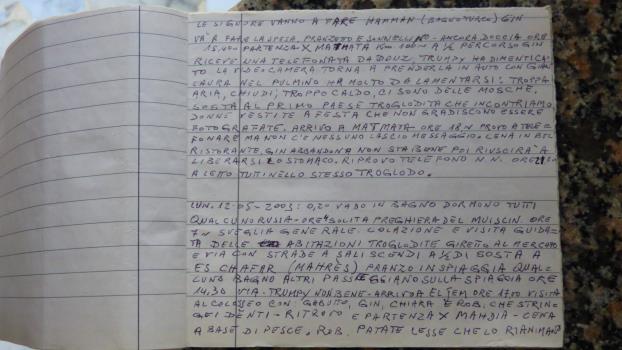 LE SIGNORE VANNO A FARE HAMMAN (BAGNO TURCO) GIN
VÀ A FARE LA SPESA, PRANZETTO E SONNELLINO - ANCORA DOCCIA ORE
15,00 PARTENZA X MATMATA KM 100 A ½ PERCORSO GIN
RICEVE UNA TELEFONATA DA DOUZ, TRUMPY HA DIMENTICA-
TO LA VIDEOCAMERA. TORNA A PRENDERLA IN AUTO CON
LAURA NEL PULMINO HA MOLTO DA LAMENTARSI: TROPPA
ARIA, CHIUDI, TROPPO CALDO, CI SONO DELLE MOSCHE.
SOSTA AL PRIMO PAESE TROGLODITA CHE INCONTRIAMO
DONNE VESTITE A FESTA CHE NON GRADISCONO ESSERE
FOTOGRAFATE. ARRIVO A MATMATA ORE 18, PROVO A TELE-
FONARE MA NON C'È NESSUNO LASCIO MESSAGGIO. CENA IN BEL
RISTORANTE. GIN ABBANDONA NON STA BENE POI RIUSCIRÀ A
LIBERARSI LO STOMACO. RIPROVO TELEFONO N.N. ORE
A LETTO TUTTI NELLO STESSO TROGLODO.
LUN. 12-05-2003: 0,20 VADO IN BAGNO DORMONO TUTTI
QUALCUNO RUSSA - ORE 4 SOLITA PREGHIERA DEL MUISCIN. ORE
7 SVEGLIA GENERALE. COLAZIONE E VISITA GUIDA-
TA DELLE ABITAZIONI TROGLODITE GIRETTO AL MERCATO
E VIA CON STRADE A SALISCENDI A ½ DI SOSTA A
ES CHAFAR (MAHRÈS) PRANZO IN SPIAGGIA QUAL-
CUNO BAGNO ALTRI PASSEGGIANO SULLA SPIAGGIA ORE
14,30 VIA. TRUMPY NON BENE - ARRIVO A EL JEM ORE 17,00 VISITA
AL COLOSSEO CON GABUTO, GIN, CHIARA E ROB. CHE STRIN-
GE I DENTI - RITROVO E PARTENZA X MAHDIA - CENA
A BASE DI PESCE. ROB. PATATE LESSE CHE LO RIANIMANO